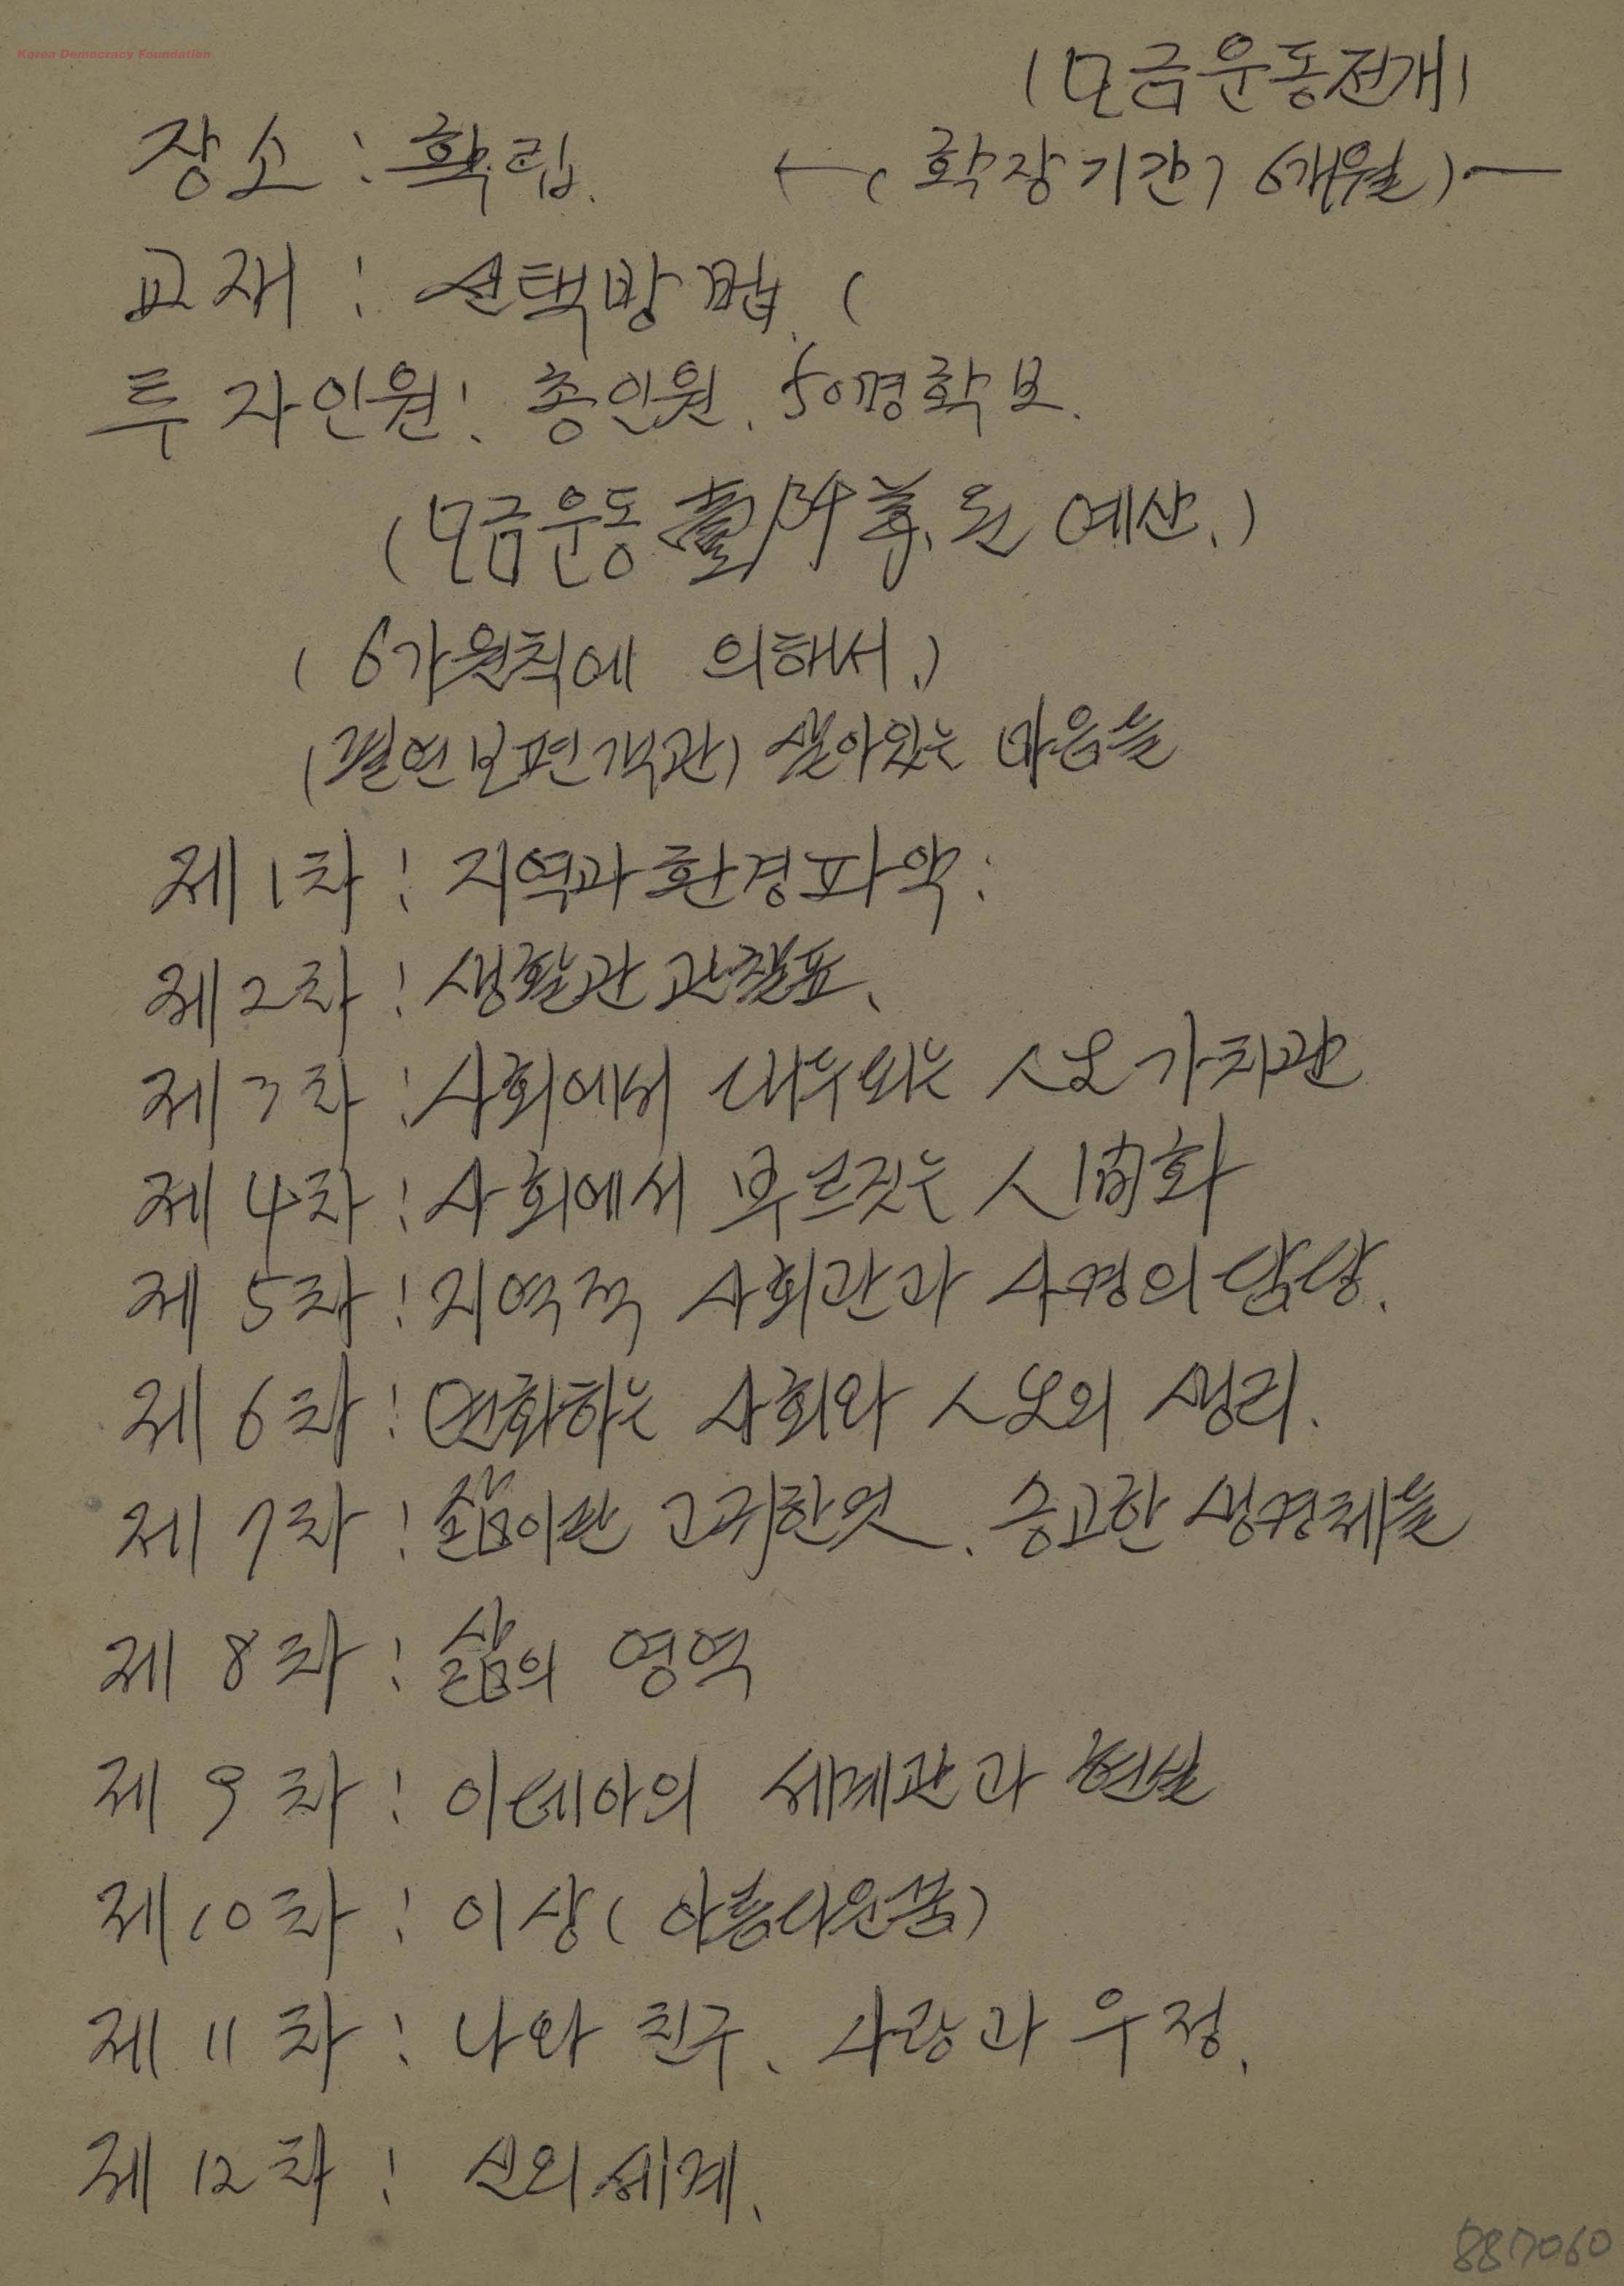 Korea Democracy Foundation
(모금운동전개)
장소 : 확립. ←( 확장기간, 6개월)—
교재 : 선택방법. (
투자인원 : 총인원. 50명확보.
(모금운동 된 예산.)
( 6가원칙에 의해서.)
(필연보편객관) 살아있는 마음들
제1차 : 지역과환경파악:
제2차 : 생활관 관찰표.
제3차 : 사회에서 대두되는 人生가치관
제4차 : 사회에서 부르짓는 人間화
제5차 : 지역적 사회관과 사명의 담당.
제6차 : 변화하는 사회와 人生의 생리.
제7차 : 삶이란 고귀한엇. 숭고한 생명체들
제8차 : 삶의 영역
제9차 : 이데아의 세계관과 현실
제10차 : 이상( 아름다운꿈)
제11차 : 나와 친구. 사랑과 우정.
제12차 : 신의세계.
887060